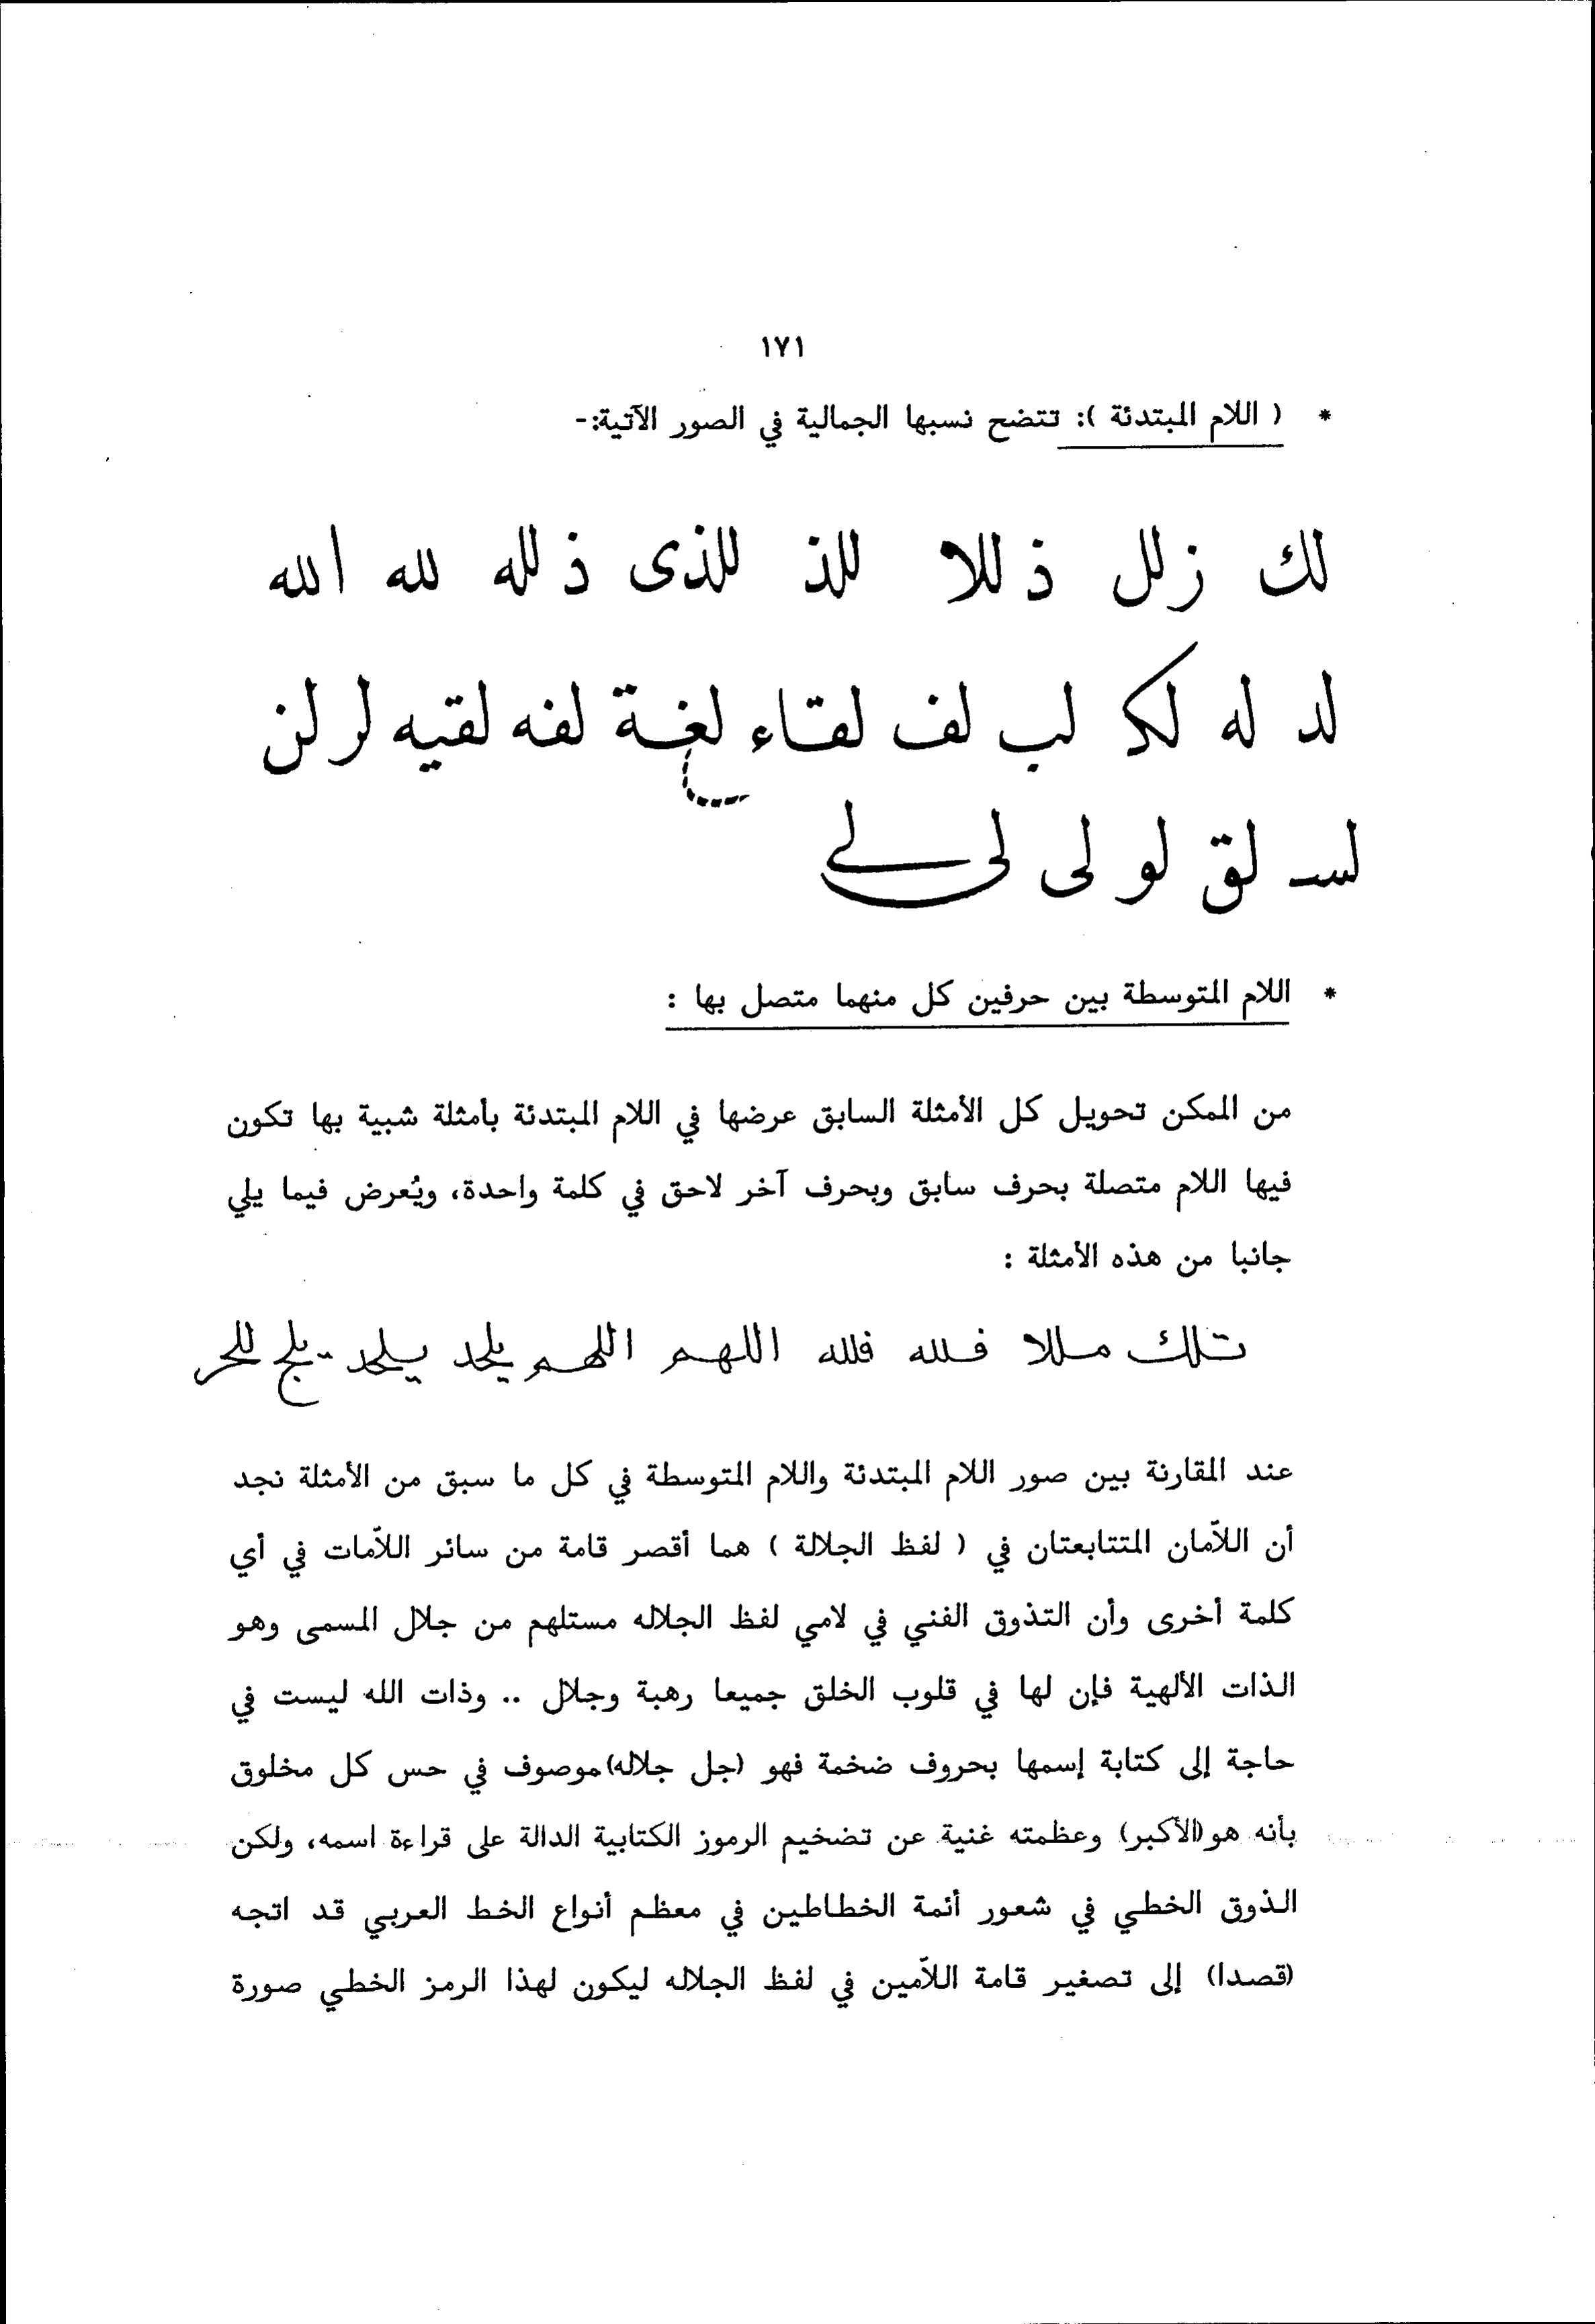 ١٧١
* ( اللام المبتدئة ): تتضح نسبها الجمالية في الصور الآتية:-
لك زلل ذ للا للذ للذى ذ لله لله الله
لد له لكـ لب لف لقاء لغة لفه لقيه لر لن
لسـ لق لو لى لى لے
* اللام المتوسطة بين حرفين كل منهما متصل بها :
من الممكن تحويل كل الأمثلة السابق عرضها في اللام المبتدئة بأمثلة شبية بها تكون
فيها اللام متصلة بحرف سابق وبحرف آخر لاحق في كلمة واحدة، ويُعرض فيما يلي
جانبا من هذه الأمثلة :
تلك مللا فلله فلله اللهم اللهم يلحد يلحد - يلج للحر
عند المقارنة بين صور اللام المبتدئة واللام المتوسطة في كل ما سبق من الأمثلة نجد
أن اللاّمان المتتابعتان في ( لفظ الجلالة ) هما أقصر قامة من سائر اللاّمات في أي
كلمة أخرى وأن التذوق الفني في لامي لفظ الجلاله مستلهم من جلال المسمى وهو
الذات الألهية فإن لها في قلوب الخلق جميعا رهبة وجلال .. وذات الله ليست في
حاجة إلى كتابة إسمها بحروف ضخمة فهو (جل جلاله) موصوف في حس كل مخلوق
بأنه هو (الأكبر) وعظمته غنية عن تضخيم الرموز الكتابية الدالة على قراءة اسمه، ولكن
الذوق الخطي في شعور أئمة الخطاطين في معظم أنواع الخط العربي قد اتجه
(قصدا) إلى تصغير قامة اللاّمين في لفظ الجلاله ليكون لهذا الرمز الخطي صورة